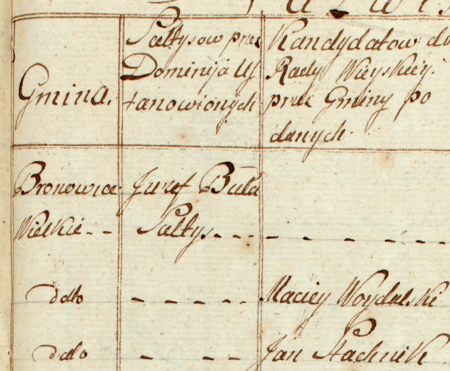 Gmina.
Sołtysow prez
Dominija Us
tanowionych
Kandydatow do
Rady Wieyskiey
prez Gminy po
danych.
Bronowice
Wielkie - -
Juzef Buła
Sołtys - - - -
- - - - - - -
dało
- - - - -
Maciey Woydalski
dało
- - - -
Jan Stachnik